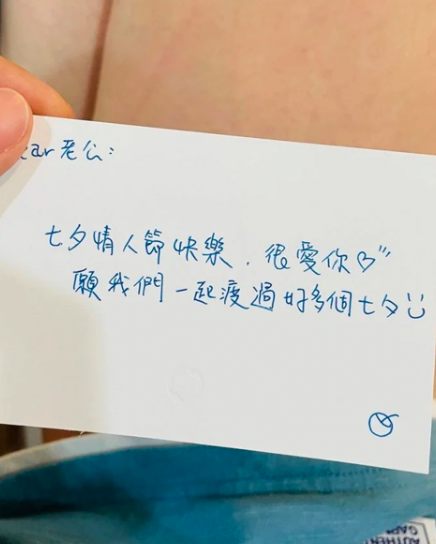 ear老公：
七夕情人節快樂．很愛你♡
願我們一起渡過好多個七夕☺